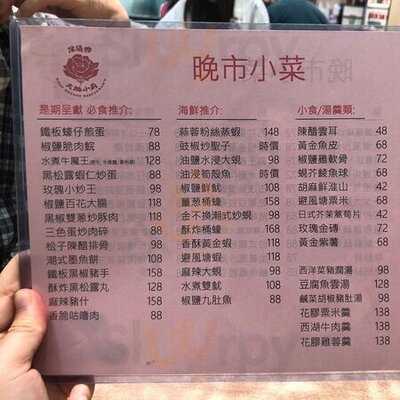 晚市小菜
是期呈獻 必食推介:
鐵板蠔仔煎蛋 78
椒鹽脆肉鯇 88
水煮牛魔王 128
黑松露蝦仁炒蛋 88
玫瑰小炒王 98
椒鹽百花大腸 118
黑椒雙蔥炒豚肉 118
三色蛋炒肉碎 88
松子陳醋排骨 98
潮式墨魚餅 108
鐵板黑椒豬手 158
酥炸黑松露丸 128
麻辣豬什 158
香脆咕嚕肉 88
海鮮推介:
蒜蓉粉絲蒸蝦 148
豉椒炒聖子 時價
油鹽水浸大蜆 98
油浸筍殼魚 時價
椒鹽鮮魷 108
薑葱桶蠔 158
金不換潮式炒蜆 98
酥炸桶蠔 168
香酥黃金蝦 118
避風塘蝦 118
麻辣大蜆 98
水煮雙魷 108
椒鹽九肚魚 88
小食/湯羹類:
陳醋雲耳 48
黃金魚皮 68
椒鹽雞軟骨 72
蜆芥鯪魚球 68
胡麻鮮淮山 42
避風塘粟米 68
日式芥茉薯苟片 42
玫瑰金磚 72
黃金紫薯 68
西洋菜豬𦟌湯 98
豆腐魚雲湯 128
鹹菜胡椒豬肚湯 98
花膠粟米羹 138
西湖牛肉羹 138
花膠雞蓉羹 138